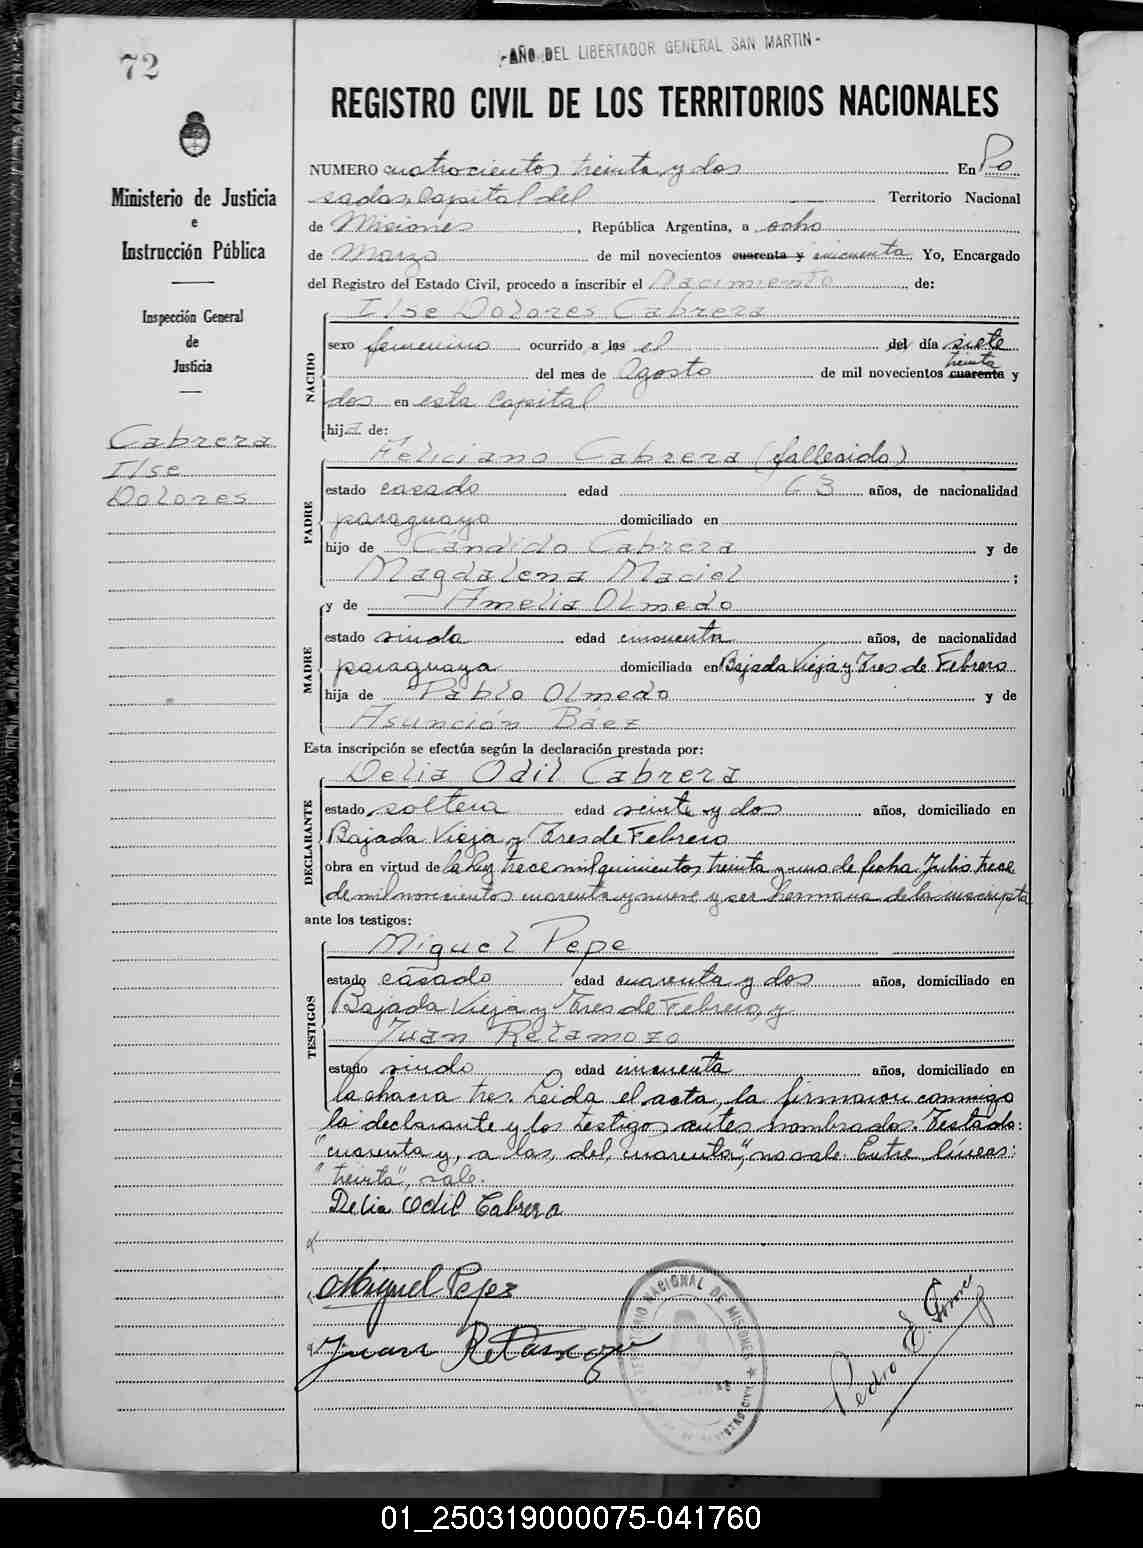 72
-AÑO DEL LIBERTADOR GENERAL SAN MARTIN-
REGISTRO CIVIL DE LOS TERRITORIOS NACIONALES
Ministerio de Justicia
e
Instrucción Pública
Inspección General
de
Justicia
Cabrera
Ilse
Dolores
NUMERO cuatrocientos treinta y dos En Po
sadas, Capital del Territorio Nacional
de Misiones, República Argentina, a ocho
de Marzo de mil novecientos cuarenta y cincuenta Yo, Encargado
del Registro del Estado Civil, procedo a inscribir el Nacimiento de:
Ilse Dolores Cabrera
NACIDO
sexo femenino ocurrido a las el del día siete
treinta
del mes de Agosto de mil novecientos cuarenta y
dos en esta Capital
hija de:
Feliciano Cabrera (fallecido)
PADRE
estado casado edad 63 años, de nacionalidad
paraguaya domiciliado en
hijo de Cándido Cabrera y de
Magdalena Maciel ;
y de Amelia Olmedo
MADRE
estado viuda edad cincuenta años, de nacionalidad
paraguaya domiciliada en Bajada Vieja y Tres de Febrero
hija de Pablo Olmedo y de
Asunción Báez
Esta inscripción se efectúa según la declaración prestada por:
Delia Odil Cabrera
DECLARANTE
estado soltera edad veinte y dos años, domiciliado en
Bajada Vieja y Tres de Febrero
obra en virtud de la ley trece mil quinientos treinta y uno de fecha Julio trece
de mil novecientos cuarenta y nueve y ser hermana de la inscripta
ante los testigos:
Miguel Pepe
TESTIGOS
estado casado edad cuarenta y dos años, domiciliado en
Bajada Vieja y Tres de Febrero, y
Juan Retamozo
estado viudo edad cincuenta años, domiciliado en
la chacra tres. Leida el acta, la firmaron conmigo
la declarante y los testigos antes nombrados. Testado:
"cuarenta y, a las, del, cuarenta", no vale. Entre líneas:
"treinta", vale.
Delia Odil Cabrera
Miguel Pepe
Juan Retamozo
TERRITORIO NACIONAL DE MISIONES
01_250319000075-041760